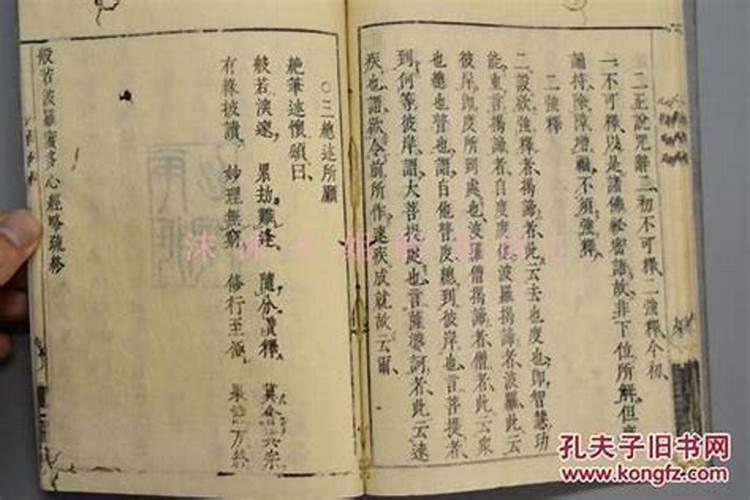 二正說咒辭二初不可釋二強釋今初
一不可釋以是諸佛祕密語故非下位所解但當
誦持除障增福不須強釋
二強釋
二設欲強釋者揭諦者此云去也度也即智慧功
能重言揭諦者自度度他波羅揭諦者波羅此云
彼岸即度所到處也波羅僧揭諦者僧者此云衆
也總也普也謂自他普度總到彼岸也言菩提者
到何等彼岸謂大菩提處也言薩婆訶者此云速
疾也謂欲令前所作速疾成就故云爾
○三總述所願
絶筆述懷頌曰
般若深邃 累劫難逢 隨分贊釋 冀會真宗
有緣披讀 妙理無窮 修行至極
般若波羅蜜多心經略疏終
孔夫子旧书网
www.kongfz.com